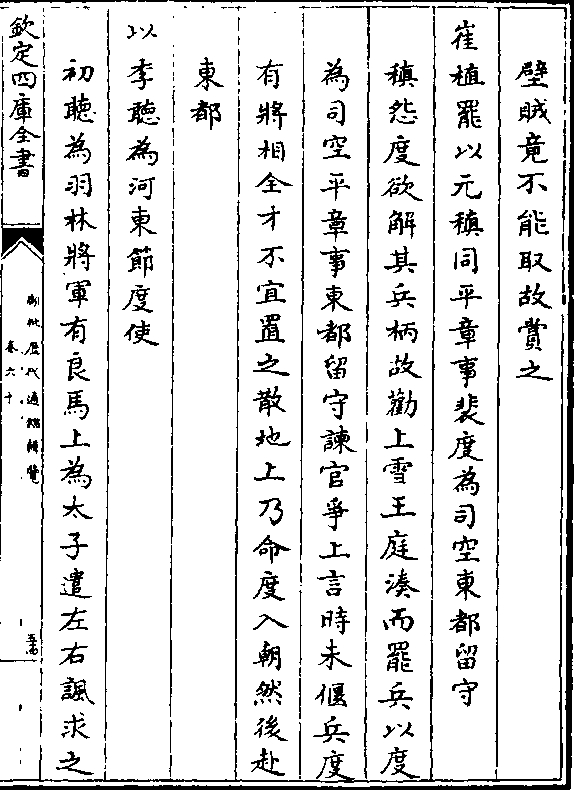 壁賊竟不能取故賞之
崔植罷以元稹同平章事裴度為司空東都留守
稹怨度欲解其兵柄故勸上雪王庭湊而罷兵以度
為司空平章事東都留守諫官爭上言時未偃兵度
有將相全才不宜置之散地上乃命度入朝然後赴
東都
以李聽為河東節度使
初聽為羽林將軍有良馬上為太子遣左右諷求之
欽定四庫全書
御批歷代通鑑輯覽
卷六十